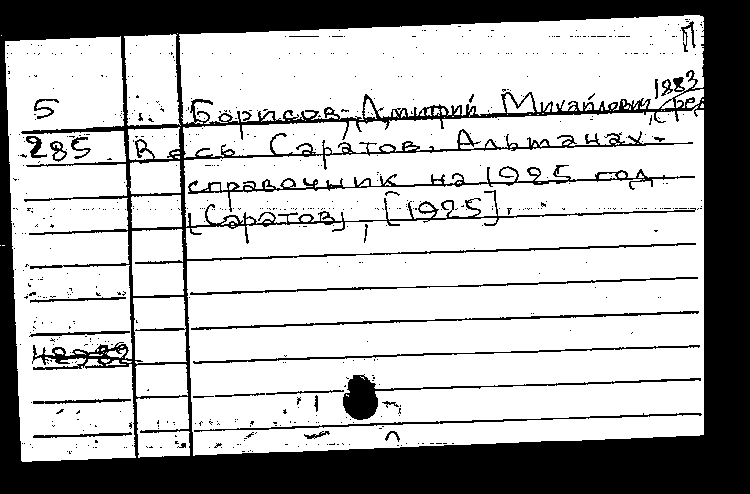 П
1883
5 Борисов, Дмитрий Михайлович, ред
285 Весь Саратов. Альманах-
справочник на 1925 год.
[Саратов], [1925].